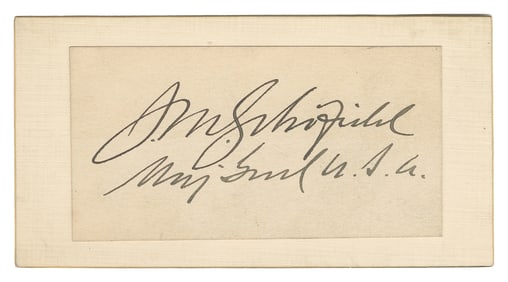 J.M. Schofield
Maj Genl U.S.A.